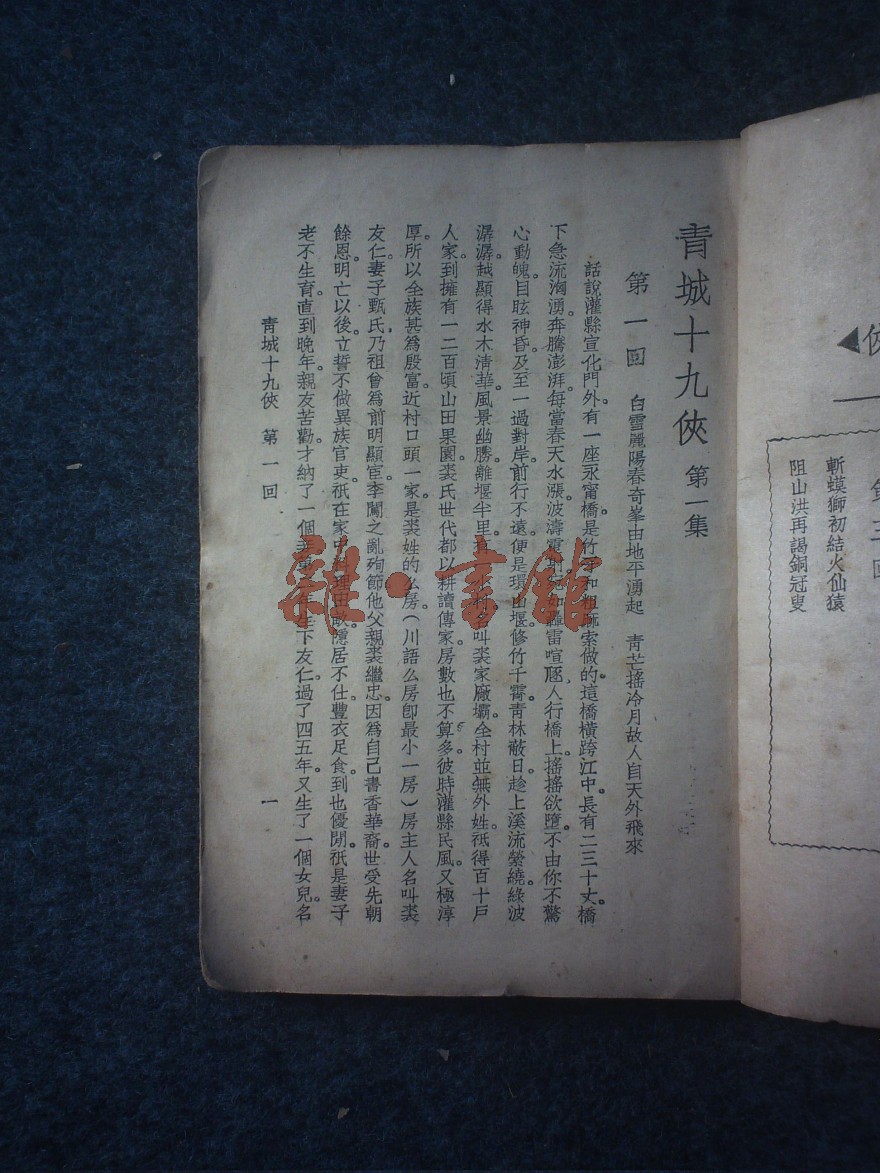 俠
第三回
斬蟆獅初結火仙猿
阻山洪再謁銅冠叟
青城十九俠 第一集
第一回 白雪麗陽春奇峯由地平湧起 青芒搖冷月故人自天外飛來
話說灌縣宣化門外。有一座永甯橋。是竹子和粗麻索做的。這橋橫跨江中。長有二三十丈。橋
下急流洶湧。奔騰澎湃。每當春天水漲。波濤電射。宛如轟雷喧豗。人行橋上。搖搖欲墮。不由你不驚
心動魄。目眩神昏。及至一過對岸。前行不遠。便是環山堰。修竹千霄。青林蔽日。趁上溪流縈繞。綠波
潺潺。越顯得水木清華。風景幽勝。離堰半里。有一小村。名叫裘家廠壩。全村並無外姓。祇得百十戶
人家。到擁有一二百頃山田果園。裘氏世代都以耕讀傳家。房數也不算多。彼時灌縣民風。又極淳
厚。所以全族甚爲殷富。近村口頭一家。是裘姓的么房。（川語么房卽最小一房）房主人名叫裘
友仁。妻子甄氏。乃祖曾爲前明顯宦。李闖之亂殉節。他父親裘繼忠。因爲自己書香華裔。世受先朝
餘恩。明亡以後。立誓不做異族官吏。祇在家中料理田畝。隱居不仕。豐衣足食。到也優閒。祇是妻子
老不生育。直到晚年。親友苦勸。才納了一個妾。第二年生下友仁。過了四五年。又生了一個女兒。名
青城十九俠 第一回
一
雜·書館